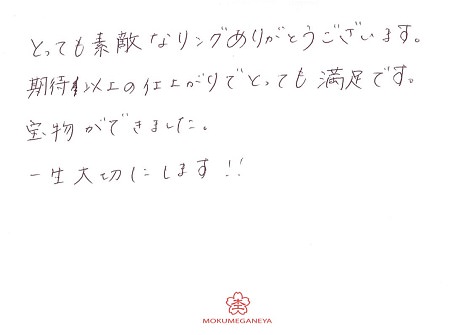 とっても素敵なリングありがとうございます。
期待以上の仕上がりでとっても満足です。
宝物ができました。
一生大切にします!!
MOKUMEGANEYA